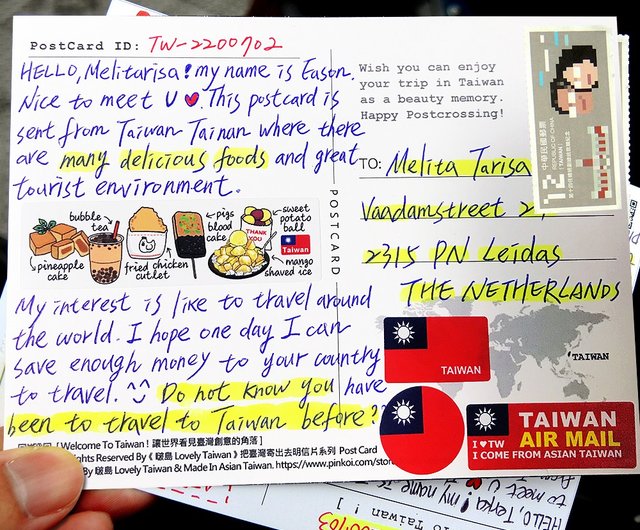 PostCard ID: TW-2200702
HELLO, Melitarisa! my name is Eason.
Nice to meet U ♥. This postcard is
sent from Taiwan Tainan where there
are many delicious foods and great
tourist environment.
bubble tea
pigs blood cake
sweet potato ball
THANK YOU
Taiwan
pineapple cake
fried chicken cutlet
mango shaved ice
My interest is like to travel around
the world. I hope one day I can
save enough money to your country
to travel. ^^ Do not know you have
been to travel to Taiwan before?
[ Welcome To Taiwan ! 讓世界看見臺灣創意的角落 ]
Rights Reserved By《 啵島 Lovely Taiwan 》把臺灣寄出去明信片系列 Post Card
By 啵島 Lovely Taiwan & Made In Asian Taiwan. https://www.pinkoi.com/stor
POSTCARD
Wish you can enjoy
your trip in Taiwan
as a beauty memory.
Happy Postcrossing!
TO: Melita Tarisa
Vaadamstreet 2,
2315 PN Leidas
THE NETHERLANDS
12
中華民國郵票
REPUBLIC OF CHINA
TAIWAN
TAIWAN
TAIWAN
AIR MAIL
I ♥ TW
I COME FROM ASIAN TAIWAN
HELLO, Terka! my name
to meet U